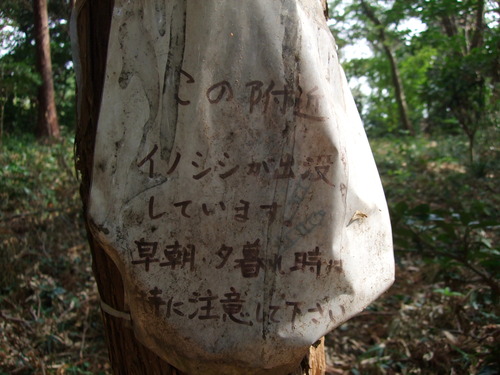 この附近
イノシシが出没
しています。
早朝・夕暮れ時は
特に注意して下さい